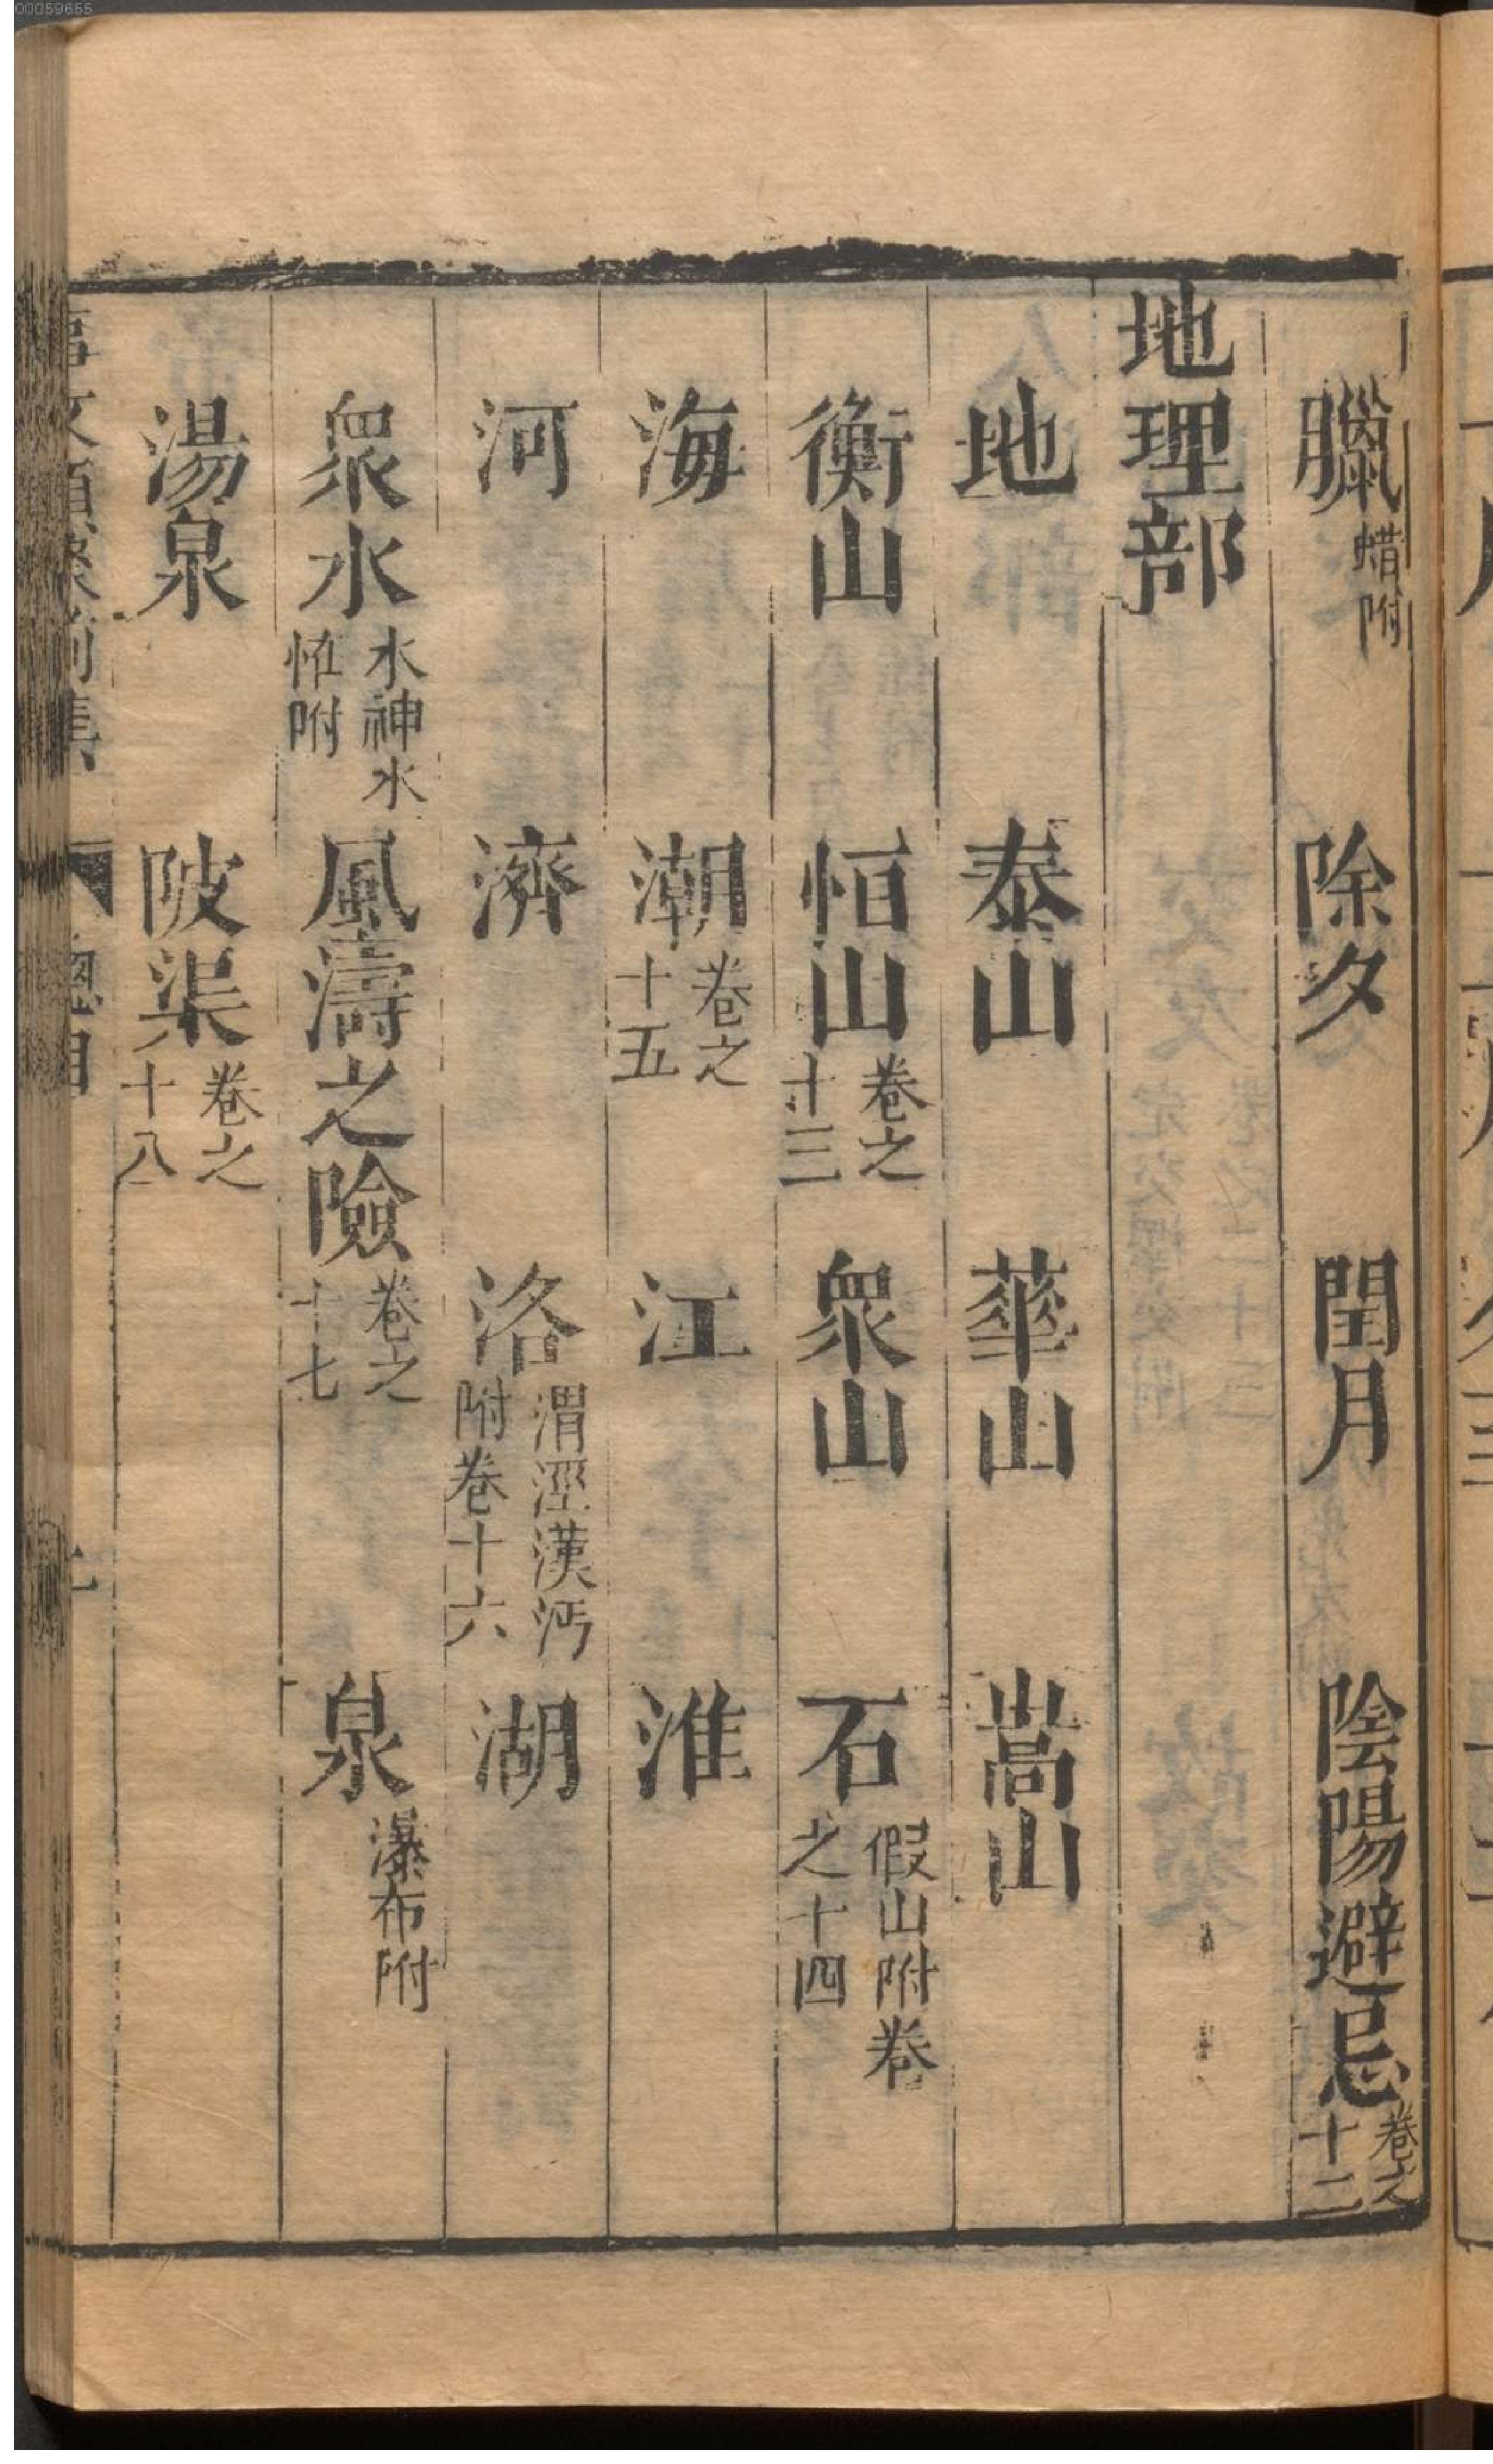 00059655
臘蜡附 除夕 閏月 陰陽避忌卷之十二
地理部
地 泰山 華山 嵩山
衡山 恒山卷之十三 衆山 石假山附卷之十四
海 潮卷之十五 江 淮
河 濟 洛渭涇漢沔附卷十六 湖
衆水水神水恠附 風濤之險卷之十七 泉瀑布附
湯泉 陂渠卷之十八